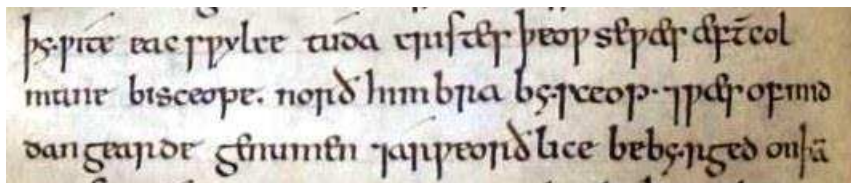 þẏ ƿite eac sƿylce tuda cristes þeoƿ se ƿæs æft̄ col
mane bisceope. norðhimbra bẏsceop. ⁊ ƿæs of mid
dangearde genumen ⁊ arƿeorðlice bebẏrged on